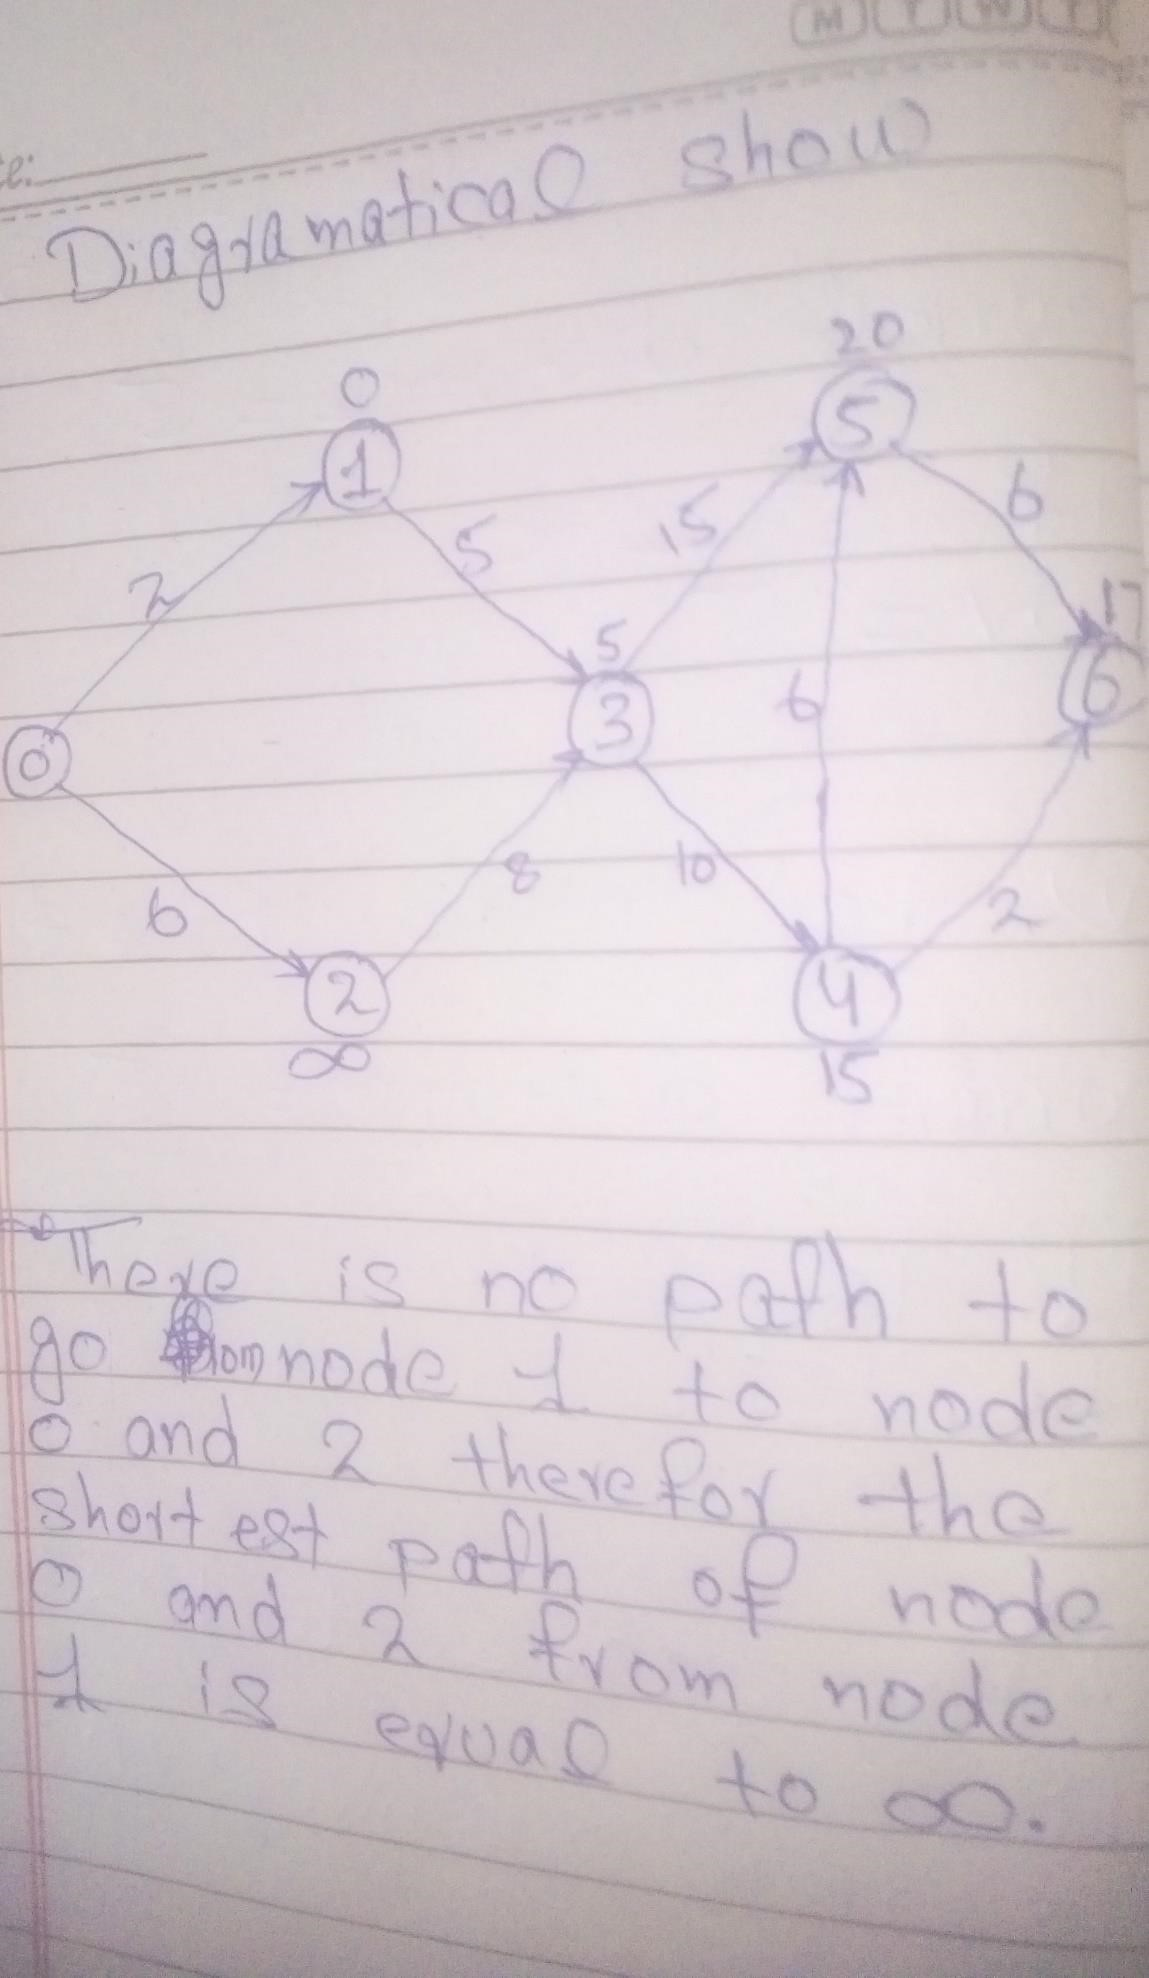 M T W T
e:
Diagramatical show
20
0
5
1
6
15
5
2
17
5
6
3
6
0
8
10
6
2
2
4
∞
15
There is no path to
go node 1 to node
0 and 2 therefor the
shortest path of node
0 and 2 from node
1 is equal to ∞.